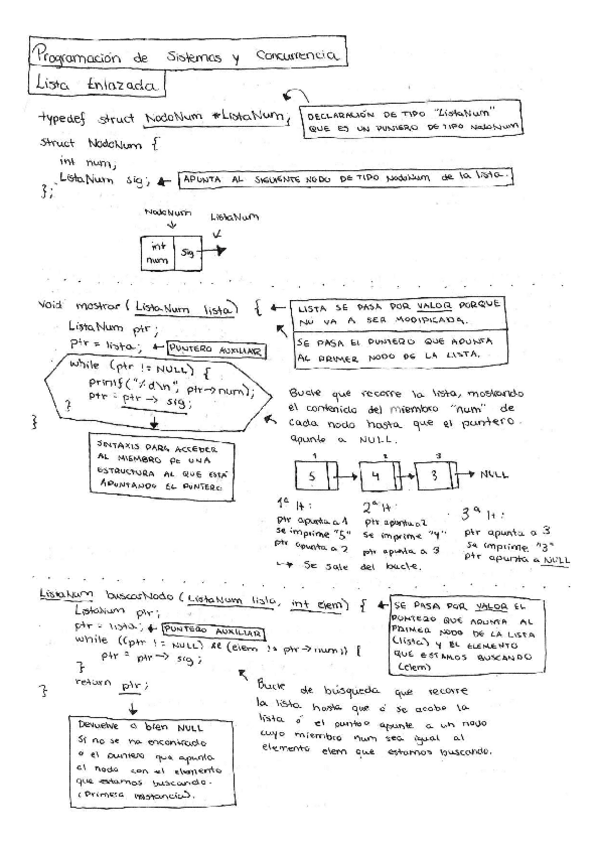 Programación de Sistemas y Concurrencia
Lista Enlazada
typedef struct NodoNum *ListaNum;
DECLARACIÓN DE TIPO "ListaNum"
QUE ES UN PUNTERO DE TIPO NodoNum
struct NodoNum {
int num;
ListaNum sig;
APUNTA AL SIGUIENTE NODO DE TIPO NodoNum de la lista.
};
NodoNum
ListaNum
int
num
sig
void mostrar (ListaNum lista) {
LISTA SE PASA POR VALOR PORQUE
NO VA A SER MODIFICADA.
ListaNum ptr;
ptr = lista;
PUNTERO AUXILIAR
SE PASA EL PUNTERO QUE APUNTA
AL PRIMER NODO DE LA LISTA.
while (ptr != NULL) {
printf("%d\n", ptr->num);
ptr = ptr -> sig;
}
}
Bucle que recorre la lista, mostrando
el contenido del miembro "num" de
cada nodo hasta que el puntero
apunte a NULL.
SINTAXIS PARA ACCEDER
AL MIEMBRO DE UNA
ESTRUCTURA AL QUE ESTÁ
APUNTANDO EL PUNTERO
1 2 3
5 4 3 NULL
1ª It: 2ª It: 3ª It:
ptr apunta a 1 ptr apunta a 2 ptr apunta a 3
se imprime "5" se imprime "4" se imprime "3"
ptr apunta a 2 ptr apunta a 3 ptr apunta a NULL
Se sale del bucle.
ListaNum buscarNodo (ListaNum lista, int elem) {
SE PASA POR VALOR EL
PUNTERO QUE APUNTA AL
PRIMER NODO DE LA LISTA
(lista) y EL ELEMENTO
QUE ESTAMOS BUSCANDO
(elem)
ListaNum ptr;
ptr = lista;
PUNTERO AUXILIAR
while ((ptr != NULL) && (elem != ptr->num)) {
ptr = ptr -> sig;
}
return ptr;
}
Bucle de búsqueda que recorre
la lista hasta que ó se acabe la
lista ó el puntero apunte a un nodo
cuyo miembro num sea igual al
elemento elem que estamos buscando.
Devuelve o bien NULL
si no se ha encontrado
o el puntero que apunta
al nodo con el elemento
que estamos buscando.
(Primera instancia).